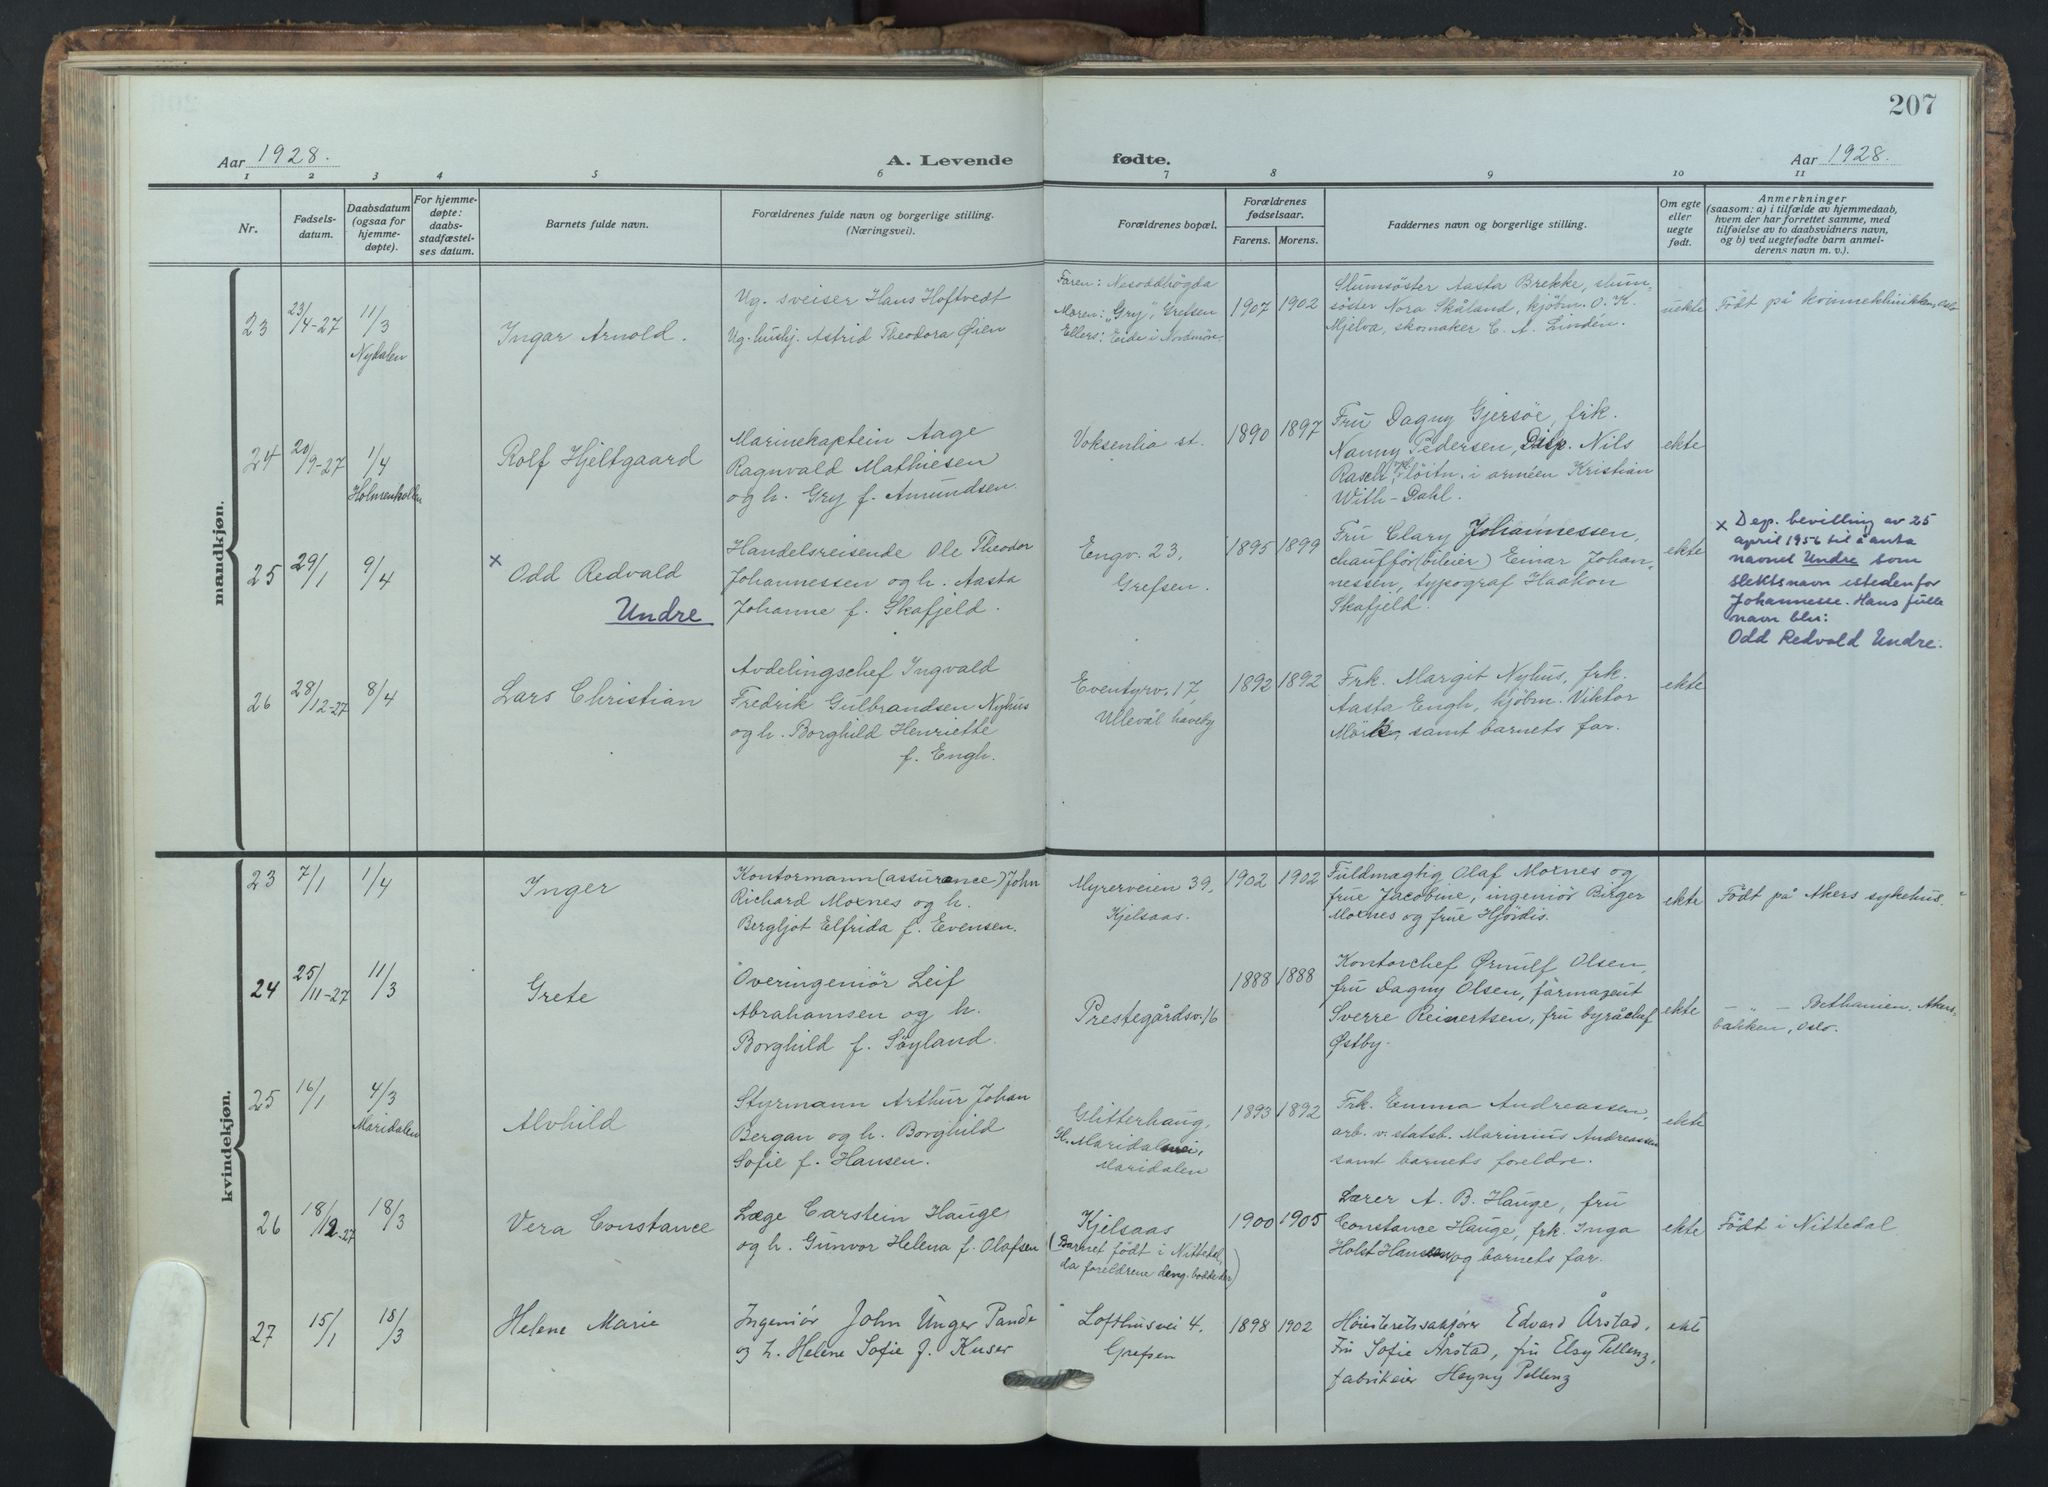 207
Aar 1928. A. Levende fødte. Aar 1928.
1 2 3 4 5 6 7 8 9 10 11
Nr.
Fødsels-
datum.
Daabsdatum
(ogsaa for
hjemme-
døpte).
For hjemme-
døpte:
daabs-
stadfæstel-
ses datum.
Barnets fulde navn.
Forældrenes fulde navn og borgerlige stilling.
(Næringsvei).
Forældrenes bopæl.
Forældrenes
fødselsaar.
Farens. Morens.
Faddernes navn og borgerlige stilling.
Om egte
eller
uegte
født.
Anmerkninger
(saasom: a) i tilfælde av hjemmedaab,
hvem der har forrettet samme, med
tilføielse av to daabsvidners navn,
og b) ved uegtefødte barn anmel-
derens navn m. v.).
mandkjøn.
23
23/4-27
11/3
Nydalen
Ingar Arnold.
Ug. sveiser Hans Hoftvedt
Ug. hushj. Astrid Theodora Øien
Faren: Nesoddhøgda
Moren: "Gry", Grefsen
Ellers: Eide i Nordmøre.
1907 1902
Slumsøster Aasta Brekke, slum-
søster Nora Skåland, kjøbm. O. K.
Mjelva, skomaker C. A. Lindén.
uekte
Født på kvinneklinikken, Oslo
24
20/9-27
1/4
Holmenkollen
Rolf Hjeltgaard
Marinekaptein Aage
Ragnvald Mathiesen
og h. Gry f. Amundsen.
Voksenlia st.
1890 1897
Fru Dagny Gjersøe, frk.
Nanny Pedersen, Disp. Nils
Rasch, løitn. i arméen Kristian
With-Dahl.
ekte
25
29/1
9/4
× Odd Redvald
Undre
Handelsreisende Ole Theodor
Johannessen og h. Aasta
Johanne f. Skafjeld.
Engv. 23,
Grefsen.
1895 1899
Fru Clary Johannessen,
chauffør (bileier) Einar Johan-
nessen, typograf Haakon
Skafjeld.
ekte
× Dep. bevilling av 25
april 1956 til å anta
navnet Undre som
slektsnavn istedenfor
Johannesse. Hans fulle
navn blir:
Odd Redvald Undre.
26
28/12-27
8/4
Lars Christian
Avdelingschef Ingvald
Fredrik Gulbrandsen Nyhus
og h. Borghild Henriette
f. Engh.
Eventyrv. 17,
Ullevål haveby
1892 1892
Frk. Margit Nyhus, frk.
Aasta Engh, kjøbm. Viktor
Mørk, samt barnets far.
ekte
kvindekjøn.
23
7/1
1/4
Inger
Kontormann (assurance) John
Richard Moxnes og h.
Bergljot Elfrida f. Evensen.
Myrerveien 39,
Kjelsaas.
1902 1902
Fuldmægtig Olaf Moxnes og
frue Jacobine, ingeniør Birger
Moxnes og frue Hjørdis.
ekte
Født på Akers sykehus.
24
25/11-27
11/3
Grete
Overingeniør Leif
Abrahamsen og h.
Borghild f. Søyland.
Prestegårdsv. 16
1888 1888
Kontorchef Ørnulf Olsen,
fru Dagny Olsen, farmazeut
Sverre Reinertsen, fru byråchef
Østby.
ekte
— " — Bethanien, Akers-
bakken, Oslo.
25
16/1
4/3
Maridalen
Alvhild
Styrmann Arthur Johan
Bergan og h. Borghild
Sofie f. Hansen.
Glitterhaug,
Gl. Maridalsvei,
Maridalen
1893 1892
Frk. Emma Andreassen,
arb. v. statsb. Marinius Andreassen
samt barnets foreldre.
ekte
26
18/12-27
18/3
Vera Constance
Læge Carstein Hauge
og h. Gunvor Helena f. Olafsen
Kjelsaas
(Barnet født i Nittedal,
da foreldrene deng. bodde der)
1900 1905
Lærer A. B. Hauge, fru
Constance Hauge, frk. Inga
Holst Hansen og barnets far.
ekte
Født i Nittedal
27
15/1
18/3
Helene Marie
Ingeniør John Unger Pande
og h. Helene Sofie f. Kuser
Lofthusvei 4.
Grefsen
1898 1902
Høiesteretsadv Edvard Årstad,
Fru Sofie Årstad, fru Elsy Pellenz,
fabrikeier Henny Pellenz
ekte